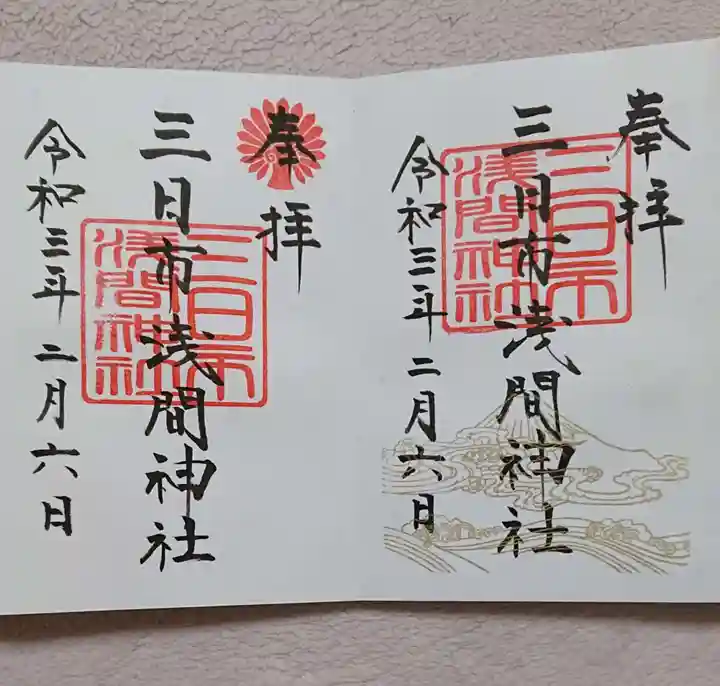 奉拝
三日市浅間神社
三日市
浅間神社
令和三年二月六日
奉拝
三日市浅間神社
三日市
浅間神社
令和三年二月六日